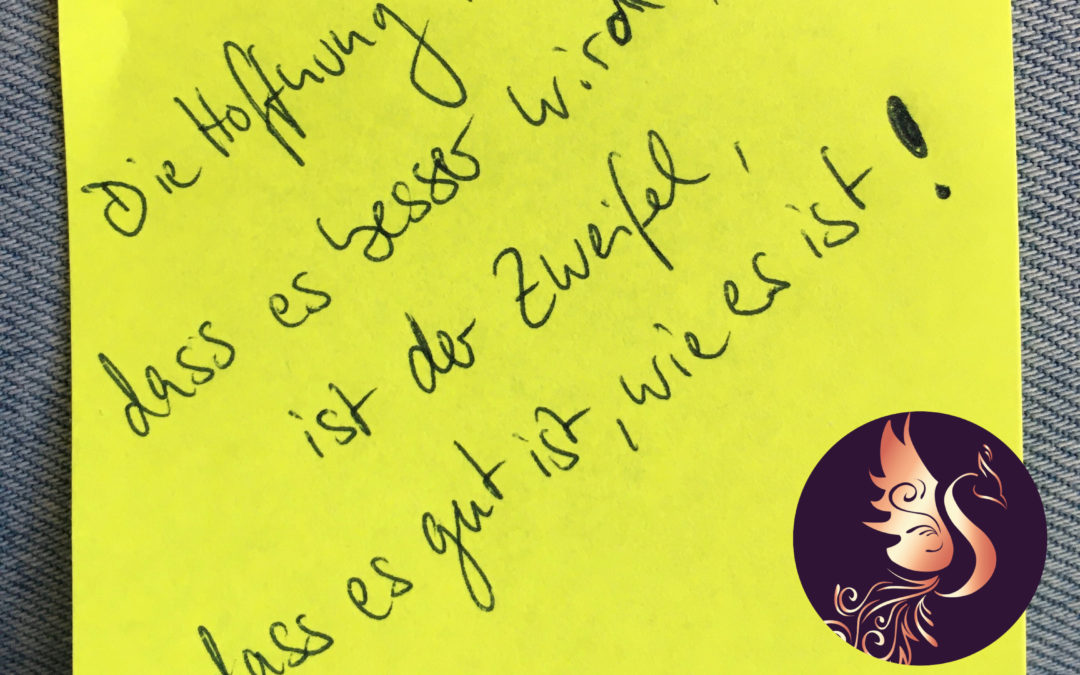 Die Hoffnung,
dass es besser wird,
ist der Zweifel,
dass es gut ist, wie es ist!